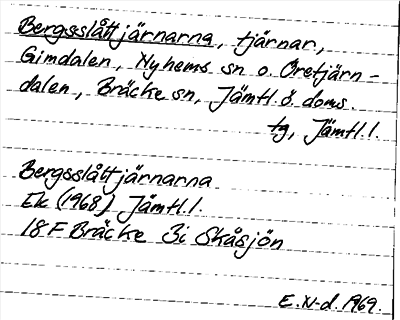 Bergsslåttjärnarna, tjärnar,
Gimdalen, Nyhems sn o. Öretjärn-
dalen, Bräcke sn, Jämtl. ö. doms.
tg, Jämtl. l.
Bergsslåttjärnarna
Ek (1968) Jämtl. l.
18F Bräcke 3i Skåsjön
E. N-d. 1969.